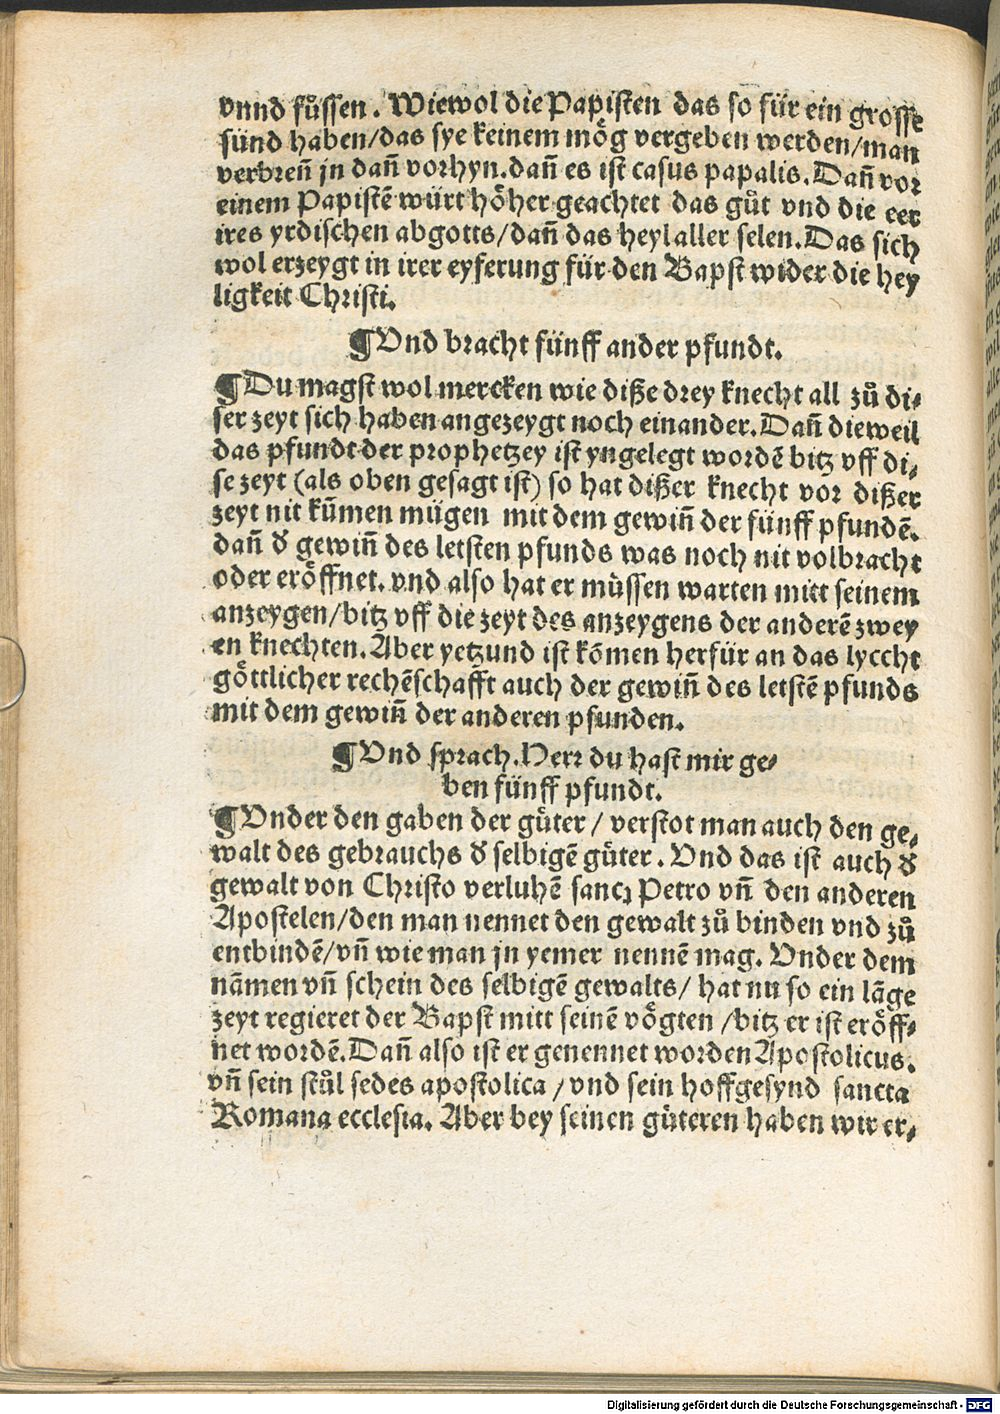 vnnd fuͤssen. Wiewol die Papisten das so für ein grosse
sünd haben/das sye keinem moͤg vergeben werden/man
verbreñ jn dañ vorhyn.dañ es ist casus papalis. Dañ vor
einem Papistē würt hoͤher geachtet das guͤt vnd die eer
ires yrdischen abgotts/dañ das heyl aller selen. Das sich
wol erzeygt in irer eyferung für den Bapst wider die hey
ligkeit Christi.
¶Vnd bracht fünff ander pfundt.
¶Du magst wol mercken wie diße drey knecht all zů di⸗
ser zeyt sich haben angezeygt noch einander. Dañ dieweil
das pfundt der prophetzey ist yngelegt wordē bitz vff di⸗
se zeyt (als oben gesagt ist) so hat dißer knecht vor dißer
zeyt nit kūmen mügen mit dem gewiñ der fünff pfundē.
dañ ð gewiñ des letsten pfunds was noch nit volbracht
oder eroͤffnet. vnd also hat er müssen warten mitt seinem
anzeygen/bitz vff die zeyt des anzeygens der anderē zwey
en knechten. Aber yetzund ist kōmen herfür an das lyecht
goͤttlicher rechēschafft auch der gewiñ des letstē pfunds
mit dem gewiñ der anderen pfunden.
¶Vnd sprach. Herr du hast mir ge⸗
ben fünff pfundt.
¶Vnder den gaben der guͤter / verstot man auch den ge⸗
walt des gebrauchs ð selbigē guͤter. Vnd das ist auch ð
gewalt von Christo verluhē sancꝫ Petro vñ den anderen
Apostelen/den man nennet den gewalt zů binden vnd zů
entbindē/vñ wie man jn yemer nennē mag. Vnder dem
nāmen vñ schein des selbigē gewalts/ hat nu so ein lāge
zeyt regieret der Bapst mitt seinē voͤgten /bitz er ist eroͤff⸗
net wordē. Dañ also ist er genennet worden Apostolicus.
vñ sein stůl sedes apostolica /vnd sein hoffgesynd sancta
Romana ecclesia. Aber bey seinen guͤteren haben wir er⸗
Digitalisierung gefördert durch die Deutsche Forschungsgemeinschaft - DFG